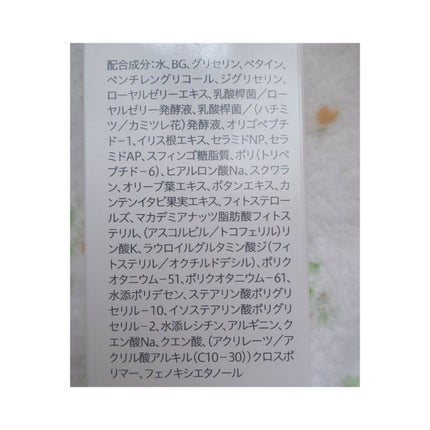 配合成分：水、BG、グリセリン、ベタイン、
ペンチレングリコール、ジグリセリン、
ローヤルゼリーエキス、乳酸桿菌／ロー
ヤルゼリー発酵液、乳酸桿菌／（ハチミ
ツ／カミツレ花）発酵液、オリゴペプチ
ド-1、イリス根エキス、セラミドNP、セラ
ミドAP、スフィンゴ糖脂質、ポリ（トリペ
プチド-6）、ヒアルロン酸Na、スクワラ
ン、オリーブ葉エキス、ボタンエキス、カ
ンテンイタビ果実エキス、フィトステロー
ルズ、マカデミアナッツ脂肪酸フィトス
テリル、（アスコルビル／トコフェリル）リ
ン酸K、ラウロイルグルタミン酸ジ（フィ
トステリル／オクチルドデシル）、ポリク
オタニウム-51、ポリクオタニウム-61、
水添ポリデセン、ステアリン酸ポリグリ
セリル-10、イソステアリン酸ポリグリ
セリル-2、水添レシチン、アルギニン、ク
エン酸Na、クエン酸、（アクリレーツ／ア
クリル酸アルキル（C10-30））クロスポ
リマー、フェノキシエタノール